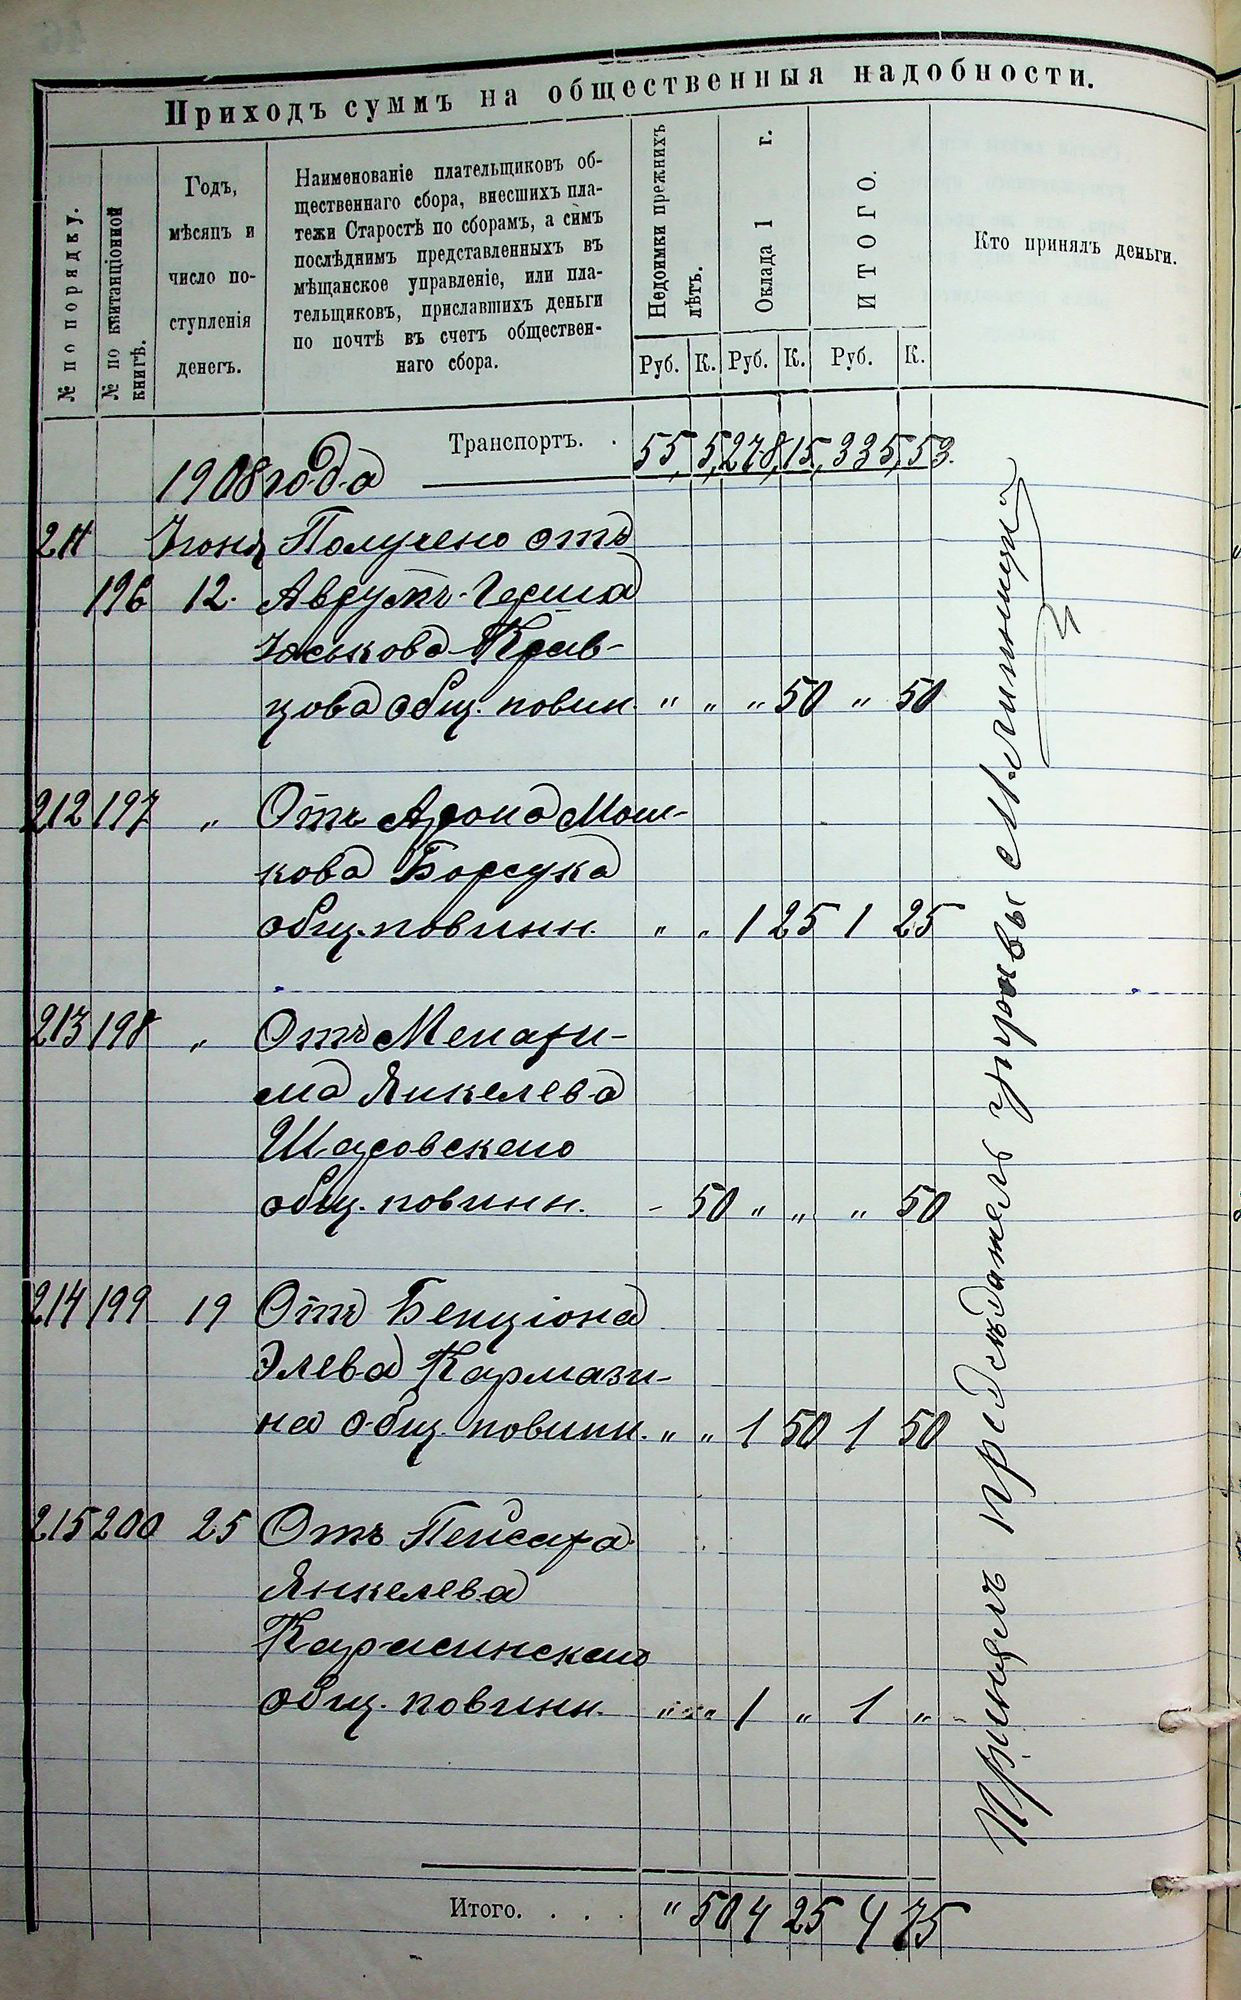 Приходъ суммъ на общественныя надобности.
№ по порядку.
№ по квитанціонной книгѣ.
Годъ,
мѣсяцъ и
число по-
ступленія
денегъ.
Наименованіе плательщиковъ об-
щественнаго сбора, внесшихъ пла-
тежи Старостѣ по сборамъ, а симъ
послѣднимъ представленныхъ въ
мѣщанское управленіе, или пла-
тельщиковъ, приславшихъ деньги
по почтѣ въ счетъ обществен-
наго сбора.
Недоимки прежнихъ лѣтъ.
Оклада 1 г.
ИТОГО.
Кто принялъ деньги.
Руб. К. Руб. К. Руб. К.
Транспортъ. . 55, 5, 278, 15, 335, 53.
1908 года
211 Іюня Получено отъ
196 12. Аврумъ-Герша
Юськова Крав-
цова общ. повин. " " " 50 " 50
212 197 " Отъ Арона Мош-
кова Борсука
общ. повинн. " " 1 25 1 25
213 198 " Отъ Менахи-
ма Янкелева
Шаровскаго
общ. повинн. - 50 " " " 50
214 199 19 Отъ Бенціона
Элева Кармази-
на общ. повинн. " " 1 50 1 50
215 200 25 Отъ Пейсаха
Янкелева
Карасинскаго
общ. повинн. " " 1 " 1 "
Итого. . . . " 50 4 25 4 75
Принялъ предсѣдатель управы